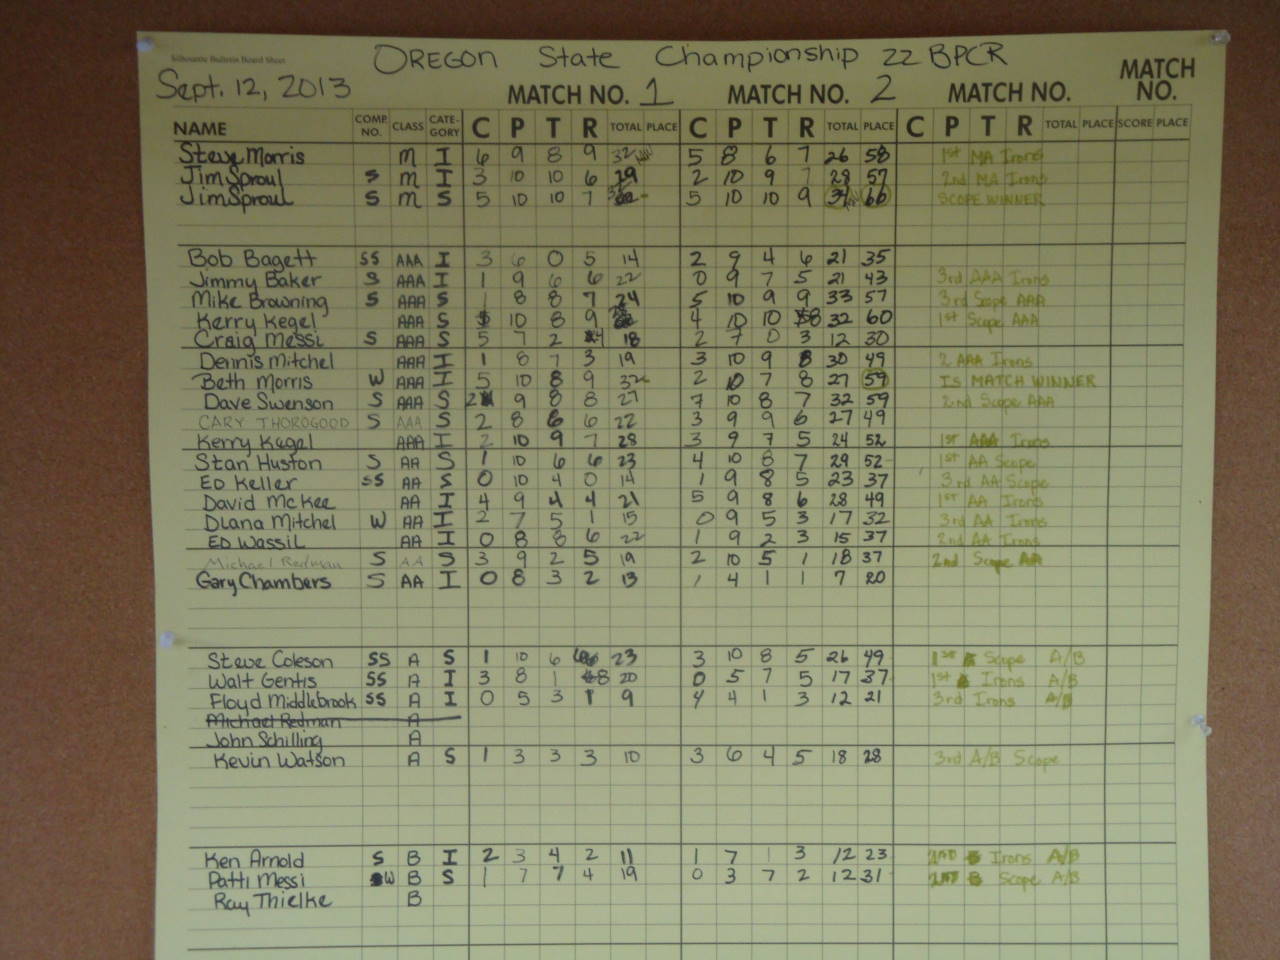 Silhouette Bulletin Board Sheet
OREGON State Championship 22 BPCR
Sept. 12, 2013 MATCH NO. 1 MATCH NO. 2 MATCH NO. MATCH NO.
NAME COMP. NO. CLASS CATE-GORY C P T R TOTAL PLACE C P T R TOTAL PLACE C P T R TOTAL PLACE SCORE PLACE
Steve Morris M I 6 9 8 9 32 5 8 6 7 26 58 1st MA Irons
Jim Sproul S M I 3 10 10 6 29 2 10 9 7 28 57 2nd MA Irons
Jim Sproul S M S 5 10 10 7 5 10 10 9 34 66 SCOPE WINNER
Bob Bagett SS AAA I 3 6 0 5 14 2 9 4 6 21 35
Jimmy Baker S AAA I 1 9 6 6 22 0 9 7 5 21 43 3rd AAA Irons
Mike Browning S AAA S 1 8 8 7 24 5 10 9 9 33 57 3rd Scope AAA
Kerry Kegel AAA S 10 8 9 4 10 10 8 32 60 1st Scope AAA
Craig Messi S AAA S 5 7 2 4 18 2 7 0 3 12 30
Dennis Mitchel AAA I 1 8 7 3 19 3 10 9 8 30 49 2 AAA Irons
Beth Morris W AAA I 5 10 8 9 32 2 10 7 8 27 59 IS MATCH WINNER
Dave Swenson S AAA S 2 9 8 8 27 7 10 8 7 32 59 2nd Scope AAA
CARY THOROGOOD S AAA S 2 8 6 6 22 3 9 9 6 27 49
Kerry Kegel AAA I 2 10 9 7 28 3 9 7 5 24 52 1st AAA Irons
Stan Huston S AA S 1 10 6 6 23 4 10 8 7 29 52 1st AA Scope
ED Keller SS AA S 0 10 4 0 14 1 9 8 5 23 37 3rd AA Scope
David McKee AA I 4 9 4 4 21 5 9 8 6 28 49 1st AA Irons
Diana Mitchel W AA I 2 7 5 1 15 0 9 5 3 17 32 3rd AA Irons
ED Wassil AA I 0 8 8 6 22 1 9 2 3 15 37 2nd AA Irons
Michael Redman S AA S 3 9 2 5 19 2 10 5 1 18 37 2nd Scope AA
Gary Chambers S AA I 0 8 3 2 13 1 4 1 1 7 20
Steve Coleson SS A S 1 10 6 6 23 3 10 8 5 26 49 1st Scope A/B
Walt Gentis SS A I 3 8 1 8 20 0 5 7 5 17 37 1st Irons A/B
Floyd Middlebrook SS A I 0 5 3 1 9 4 4 1 3 12 21 3rd Irons A/B
Michael Redman A
John Schilling A
Kevin Watson A S 1 3 3 3 10 3 6 4 5 18 28 3rd A/B Scope
Ken Arnold S B I 2 3 4 2 11 1 7 1 3 12 23 2ND Irons A/B
Patti Messi W B S 1 7 7 4 19 0 3 7 2 12 31 2ND Scope A/B
Ray Thielke B